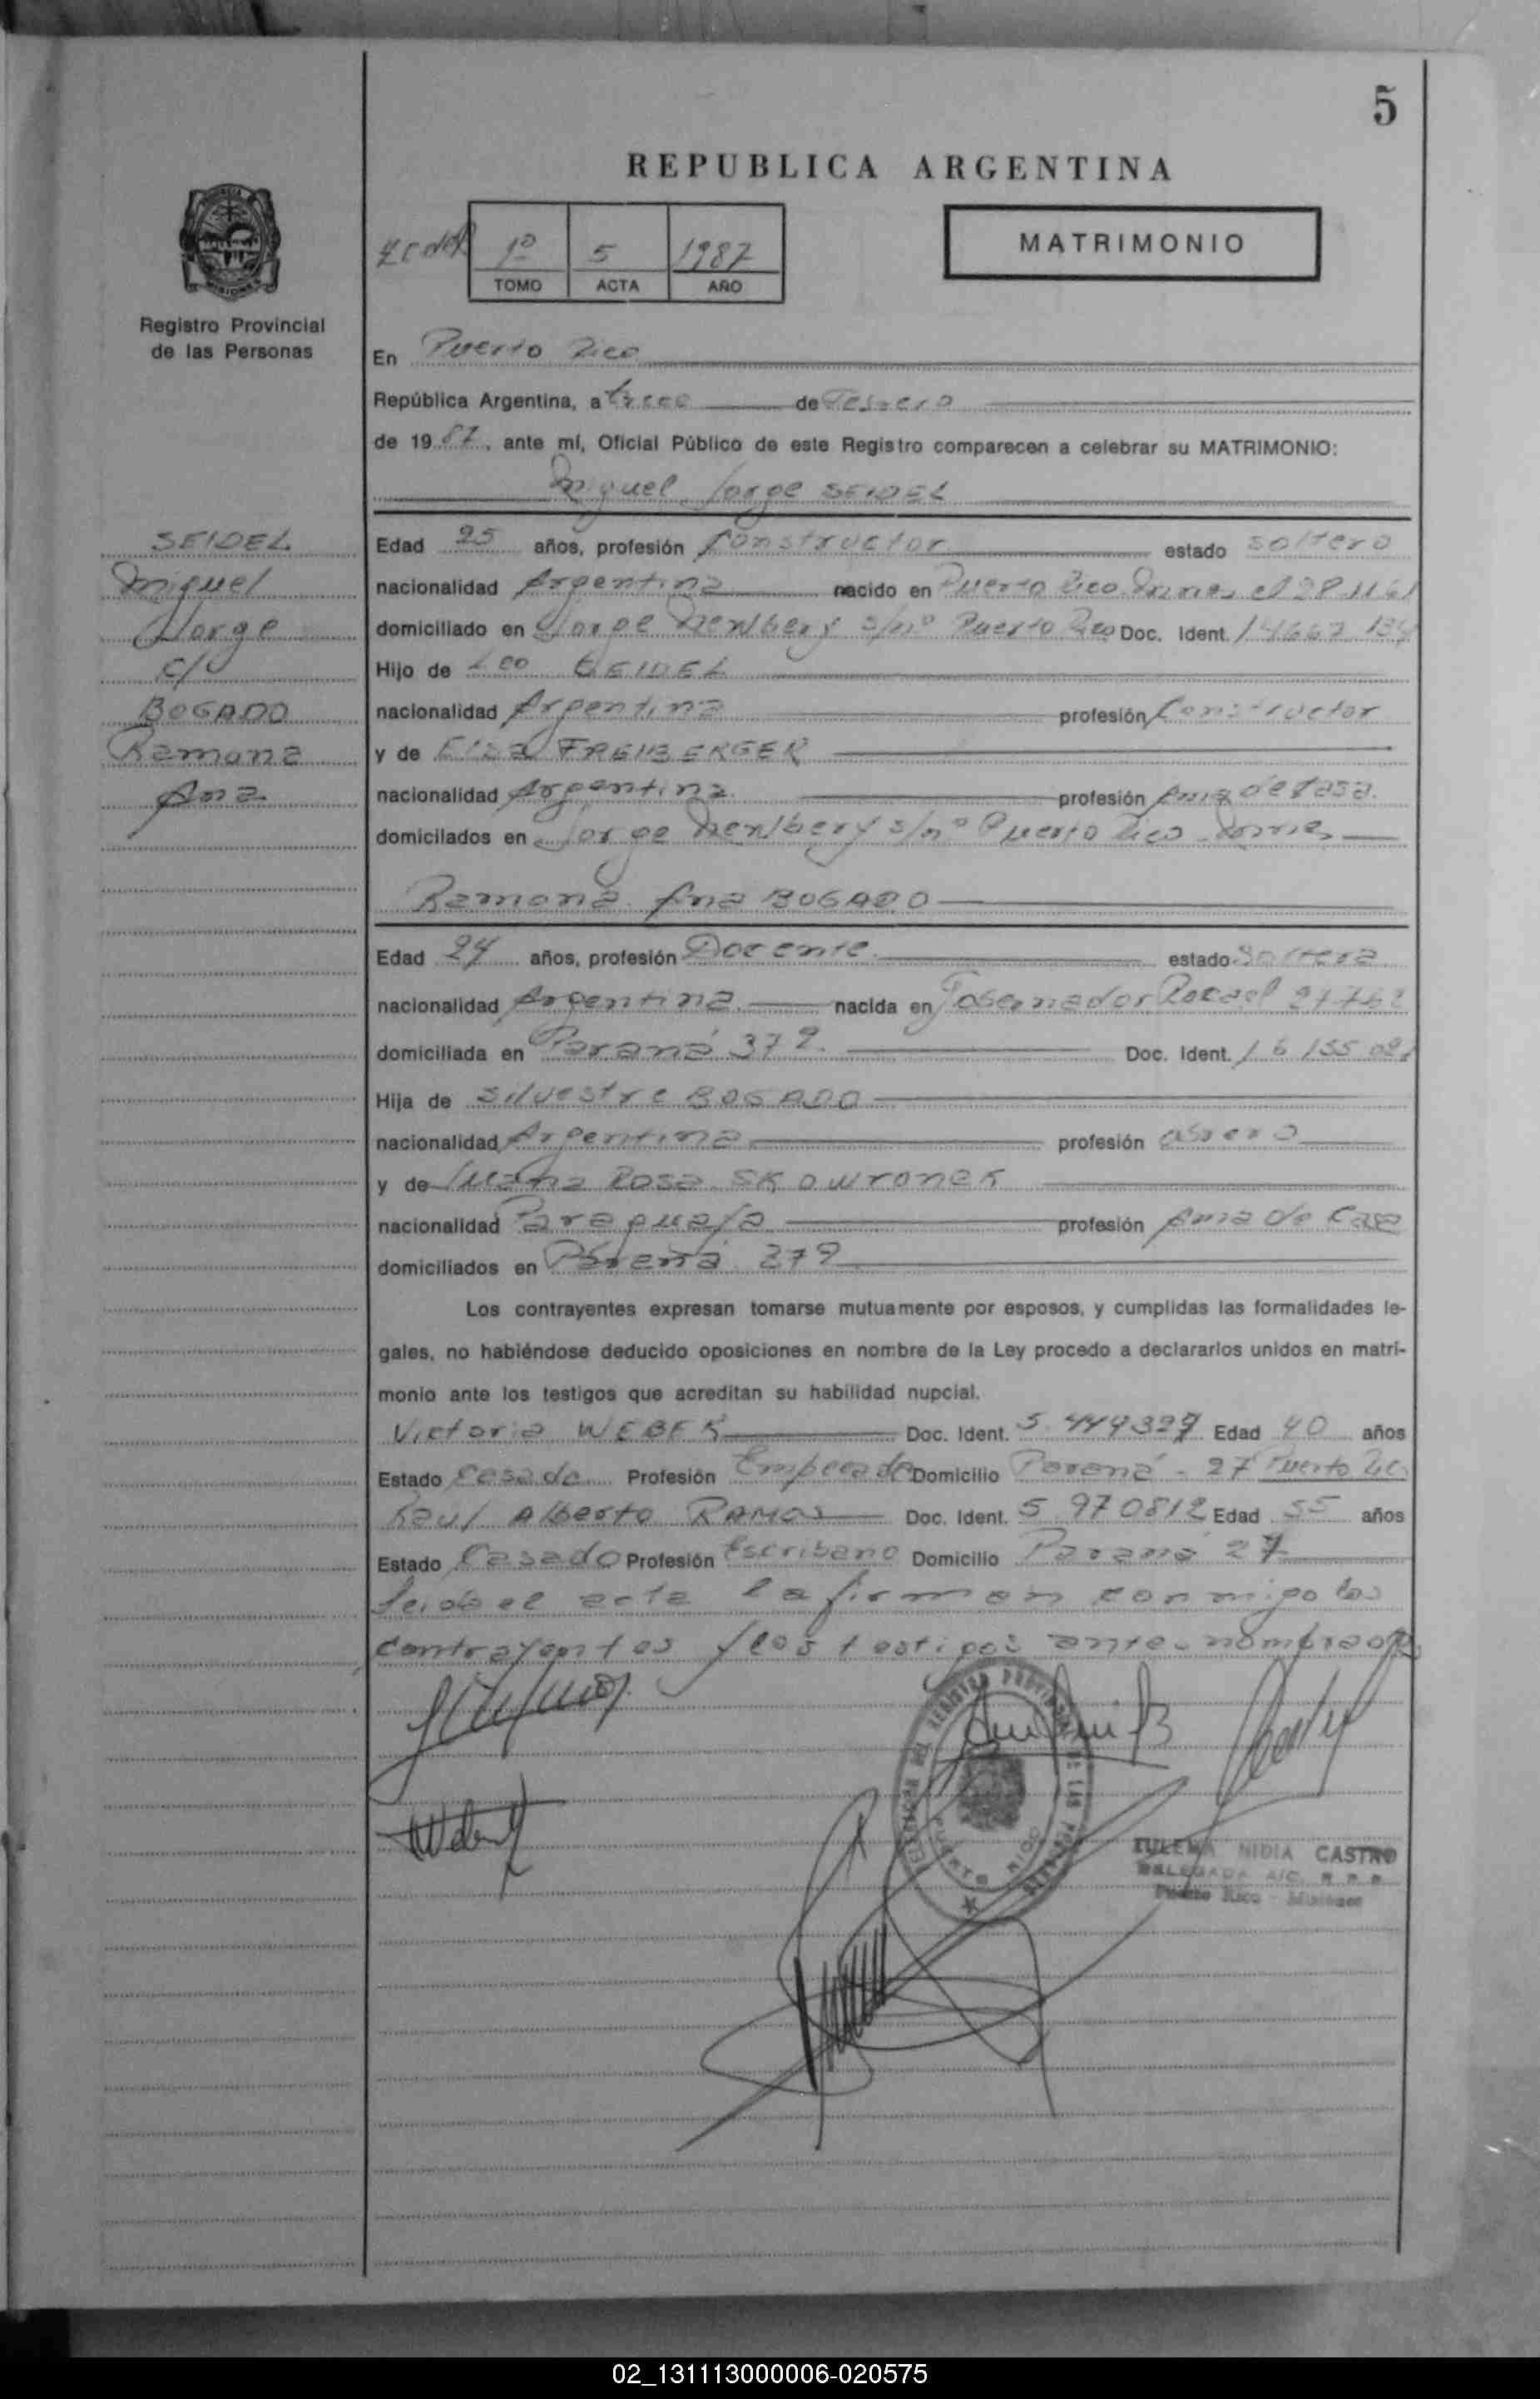 5
REPUBLICA ARGENTINA
1º 5 1987
TOMO ACTA AÑO
MATRIMONIO
Registro Provincial
de las Personas
En Puerto Rico
República Argentina, a trece de Febrero
de 1987, ante mí, Oficial Público de este Registro comparecen a celebrar su MATRIMONIO:
Miguel Jorge SEIDEL
SEIDEL
Miguel
Jorge
c/
BOGADO
Ramona
Ana
Edad 25 años, profesión Constructor estado soltero
nacionalidad Argentina nacido en Puerto Rico Mnes el 28 11 61
domiciliado en Jorge Newbery s/nº Puerto Rico Doc. Ident. 14667
Hijo de Leo SEIDEL
nacionalidad Argentina profesión Constructor
y de Elsa FREIBERGER
nacionalidad Argentina profesión Ama de Casa
domicilados en Jorge Newbery s/nº Puerto Rico Mnes
Ramona Ana BOGADO
Edad 24 años, profesión Docente estado Soltera
nacionalidad Argentina nacida en Gobernador Roca el
domiciliada en Paraná 379 Doc. Ident. 16 155
Hija de Silvestre BOGADO
nacionalidad Argentina profesión obrero
y de Juana Rosa SKOWRONEK
nacionalidad Paraguaya profesión Ama de Casa
domiciliados en Paraná 379
Los contrayentes expresan tomarse mutuamente por esposos, y cumplidas las formalidades le-
gales, no habiéndose deducido oposiciones en nombre de la Ley procedo a declararlos unidos en matri-
monio ante los testigos que acreditan su habilidad nupcial.
Victoria WEBER Doc. Ident. 5 449327 Edad 40 años
Estado Casada Profesión Empleada Domicilio Paraná - 27 Puerto Rico
Raul Alberto RAMOS Doc. Ident. 5 970812 Edad 55 años
Estado Casado Profesión Escribano Domicilio Paraná 27
Leida el acta la firman conmigo los
contrayentes y los testigos ante nombrados
REGISTRO PROVINCIAL DE LAS PERSONAS
PUERTO RICO
ZULEMA NIDIA CASTRO
DELEGADA A/C. R. P. P.
Puerto Rico - Misiones
02_131113000006-020575